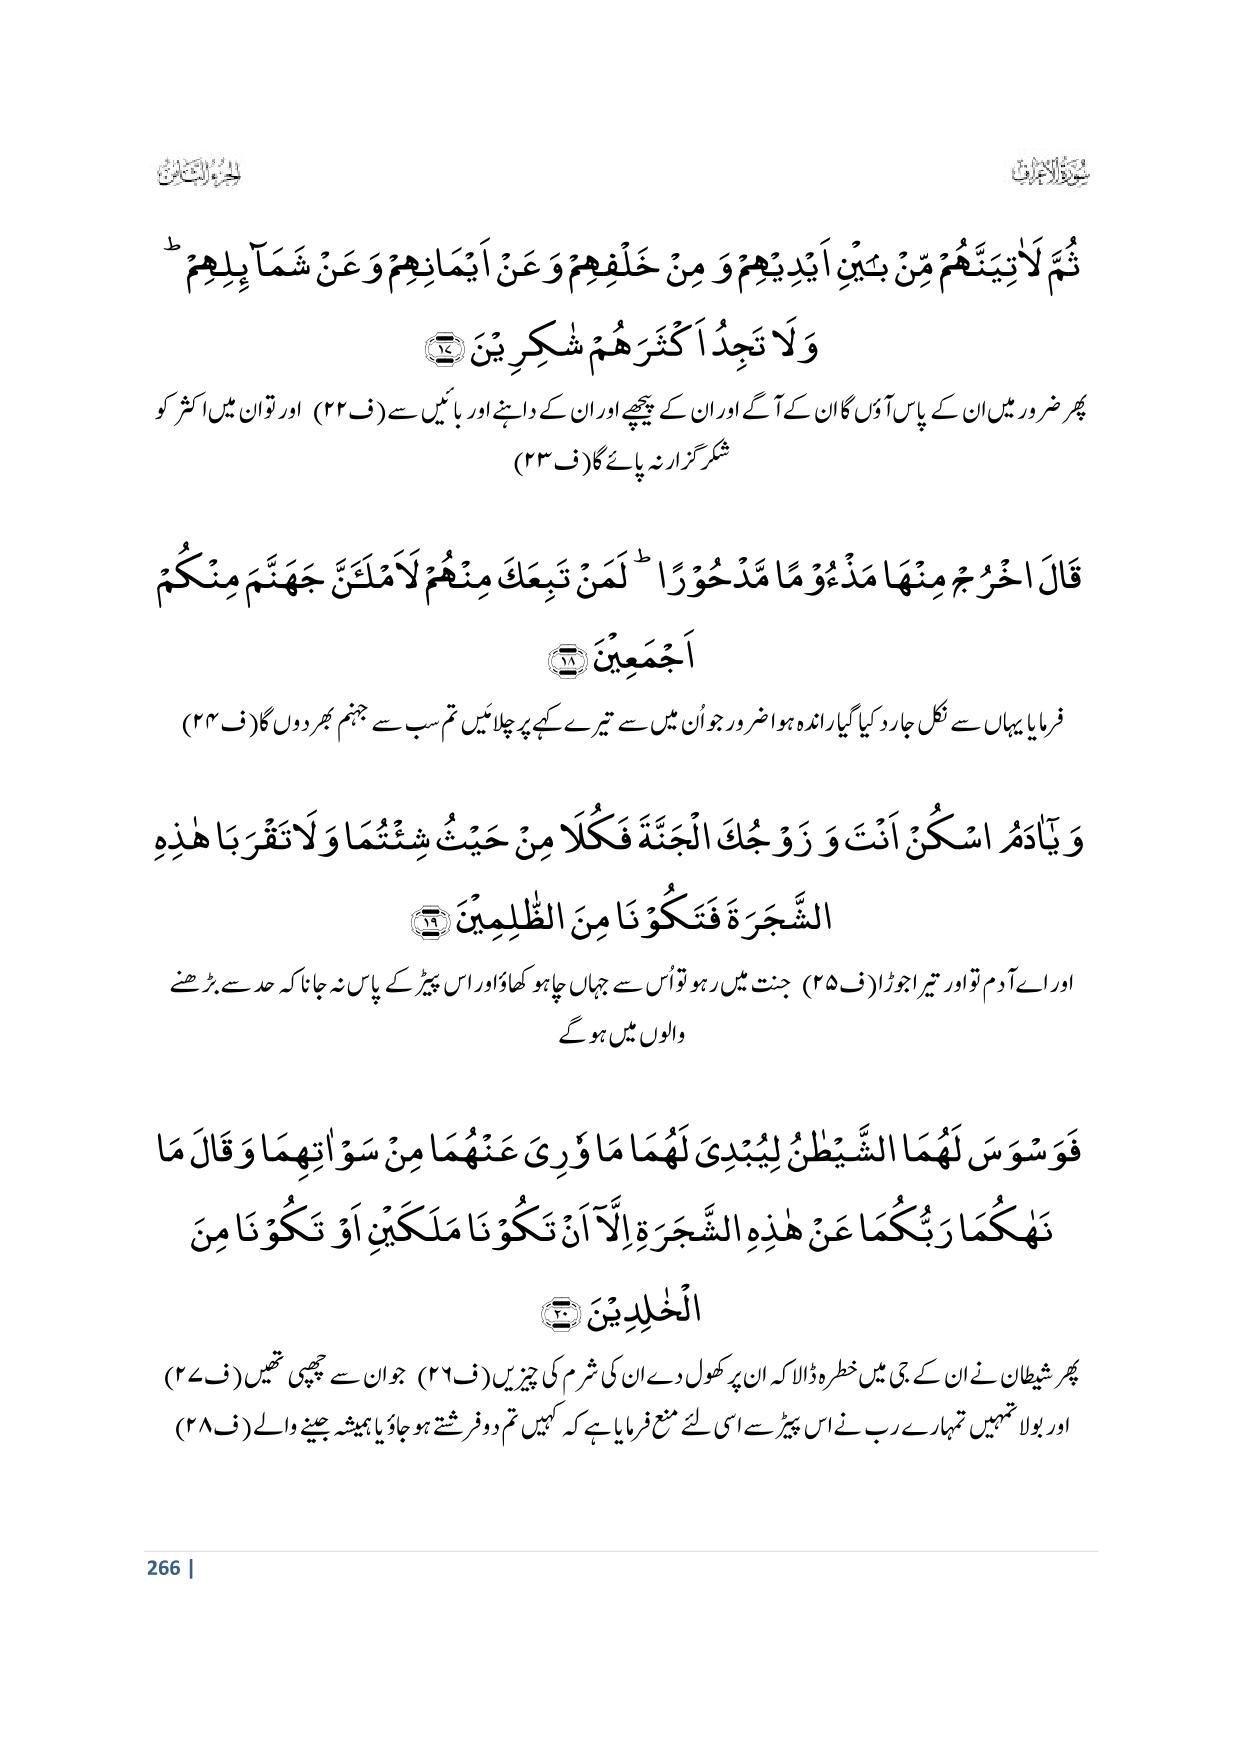 سُوْرَةُ الْاَعْرَافِ
الجزء الثامن
ثُمَّ لَاٰتِيَنَّهُمْ مِّنْۢ بَيْنِ اَيْدِيْهِمْ وَ مِنْ خَلْفِهِمْ وَ عَنْ اَيْمَانِهِمْ وَ عَنْ شَمَآىِٕلِهِمْ ؕ
وَ لَا تَجِدُ اَكْثَرَهُمْ شٰكِرِيْنَ ﴿۱۷﴾
پھر ضرور میں ان کے پاس آؤں گا ان کے آگے اور ان کے پیچھے اور ان کے داہنے اور بائیں سے (ف۲۲) اور تو ان میں اکثر کو
شکر گزار نہ پائے گا (ف۲۳)
قَالَ اخْرُجْ مِنْهَا مَذْءُوْمًا مَّدْحُوْرًا ؕ لَمَنْ تَبِعَكَ مِنْهُمْ لَاَمْلَـَٔنَّ جَهَنَّمَ مِنْكُمْ
اَجْمَعِيْنَ ﴿۱۸﴾
فرمایا یہاں سے نکل جا رد کیا گیا راندہ ہوا ضرور جو اُن میں سے تیرے کہے پر چلا میَں تم سب سے جہنم بھر دوں گا (ف۲۴)
وَ يٰۤاٰدَمُ اسْكُنْ اَنْتَ وَ زَوْجُكَ الْجَنَّةَ فَكُلَا مِنْ حَيْثُ شِئْتُمَا وَ لَا تَقْرَبَا هٰذِهِ
الشَّجَرَةَ فَتَكُوْنَا مِنَ الظّٰلِمِيْنَ ﴿۱۹﴾
اور اے آدم تو اور تیرا جوڑا (ف۲۵) جنت میں رہو تو اُس سے جہاں چاہو کھاؤ اور اس پیڑ کے پاس نہ جانا کہ حد سے بڑھنے
والوں میں ہو گے
فَوَسْوَسَ لَهُمَا الشَّيْطٰنُ لِيُبْدِیَ لَهُمَا مَا وٗرِیَ عَنْهُمَا مِنْ سَوْاٰتِهِمَا وَ قَالَ مَا
نَهٰىكُمَا رَبُّكُمَا عَنْ هٰذِهِ الشَّجَرَةِ اِلَّاۤ اَنْ تَكُوْنَا مَلَكَيْنِ اَوْ تَكُوْنَا مِنَ
الْخٰلِدِيْنَ ﴿۲۰﴾
پھر شیطان نے ان کے جی میں خطرہ ڈالا کہ ان پر کھول دے ان کی شرم کی چیزیں (ف۲۶) جو ان سے چھپی تھیں (ف۲۷)
اور بولا تمہیں تمہارے رب نے اس پیڑ سے اسی لئے منع فرمایا ہے کہ کہیں تم دو فرشتے ہو جاؤ یا ہمیشہ جینے والے (ف۲۸)
266 |